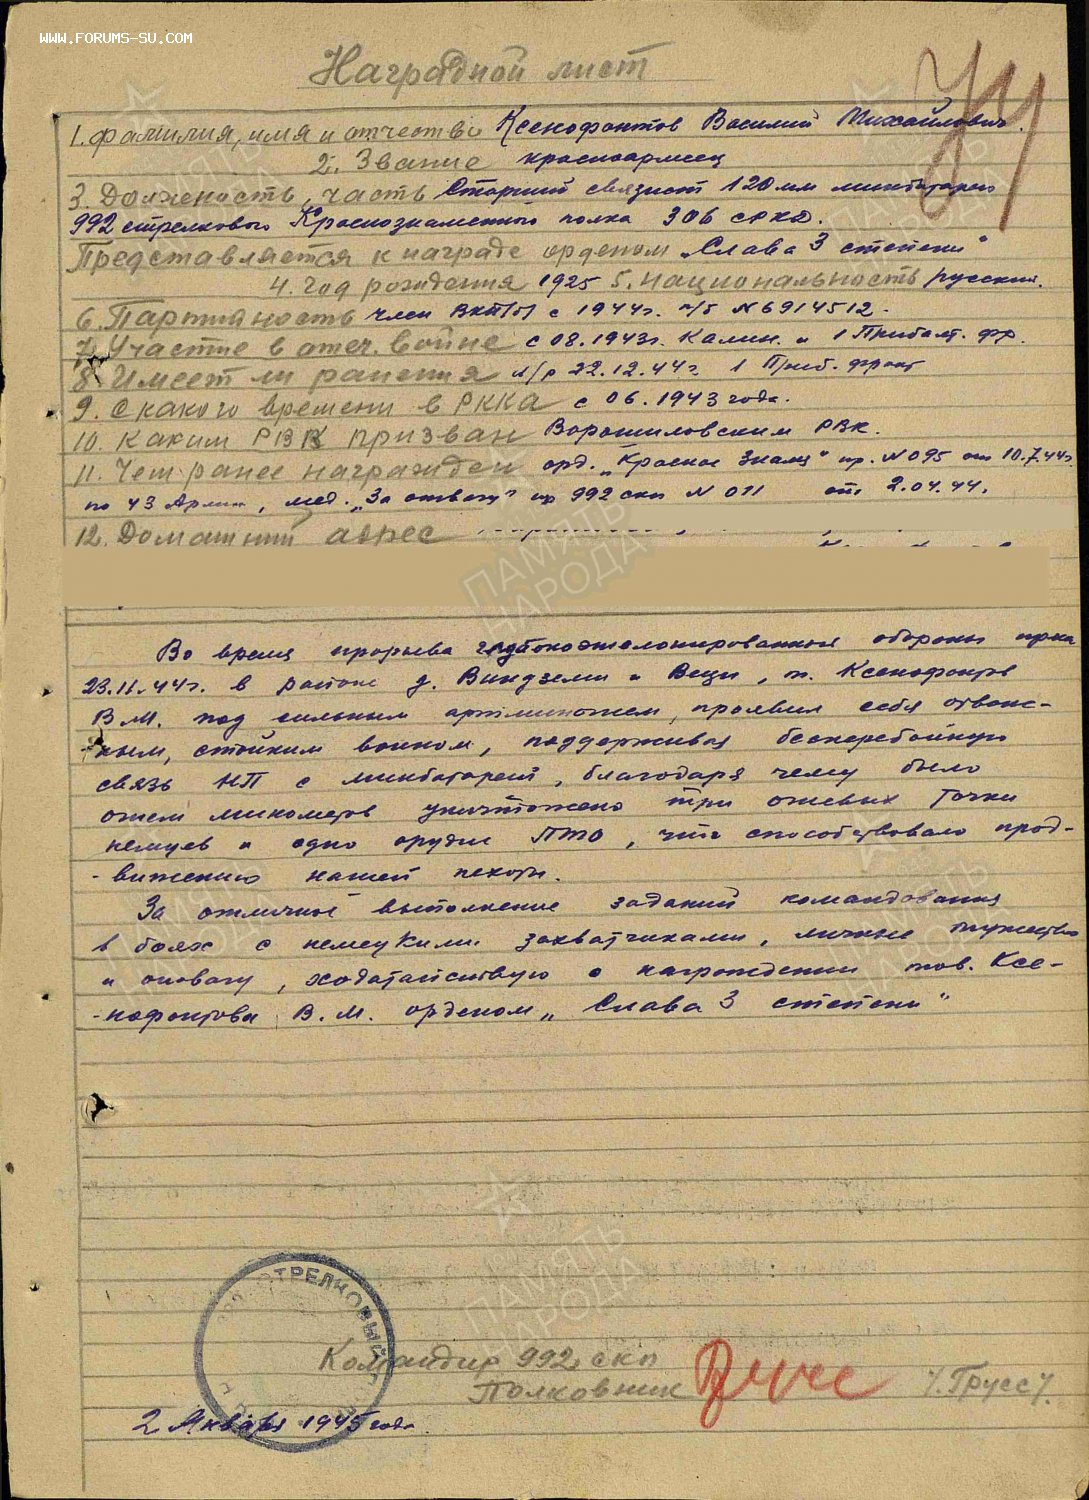 WWW.FORUMS-SU.COM
Наградной лист
1. фамилия, имя и отчество Ксенофонтов Василий Михайлович.
2. Звание красноармеец
3. Должность, часть Старший связист 120 мм минбатареи
992 стрелкового Краснознаменного полка 306 сркд.
Представляется к награде орденом „Слава 3 степени"
4. Год рождения 1925 5. Национальность русский.
6. Партийность член ВКП(б) с 1944г. п/б № 6914512.
7. Участие в отеч. войне с 08.1943г. Калин. и 1 Прибалт. фр.
8. Имеет ли ранения л/р 22.12.44г. 1 Приб. фронт
9. С какого времени в РККА с 06.1943 года.
10. Каким РВК призван Ворошиловским РВК.
11. Чем ранее награжден орд. „Красное Знамя" пр. № 095 от 10.7.44г.
по 43 Армии, мед. „За отвагу" пр 992 скп № 011 от 2.04.44.
12. Домашний адрес
Во время прорыва глубокоэшелонированной обороны прка
23.11.44г. в районе д. Виндземи и Веци, т. Ксенофонтов
В.М. под сильным артминогнем, проявил себя отваж-
-ным, стойким воином, поддерживая бесперебойную
связь НП с минбатареей, благодаря чему было
огнем минометов уничтожено три огневых точки
немцев и одно орудие ПТО, что способствовало прод-
-вижению нашей пехоты.
За отличное выполнение заданий командования
в боях с немецкими захватчиками, личные мужество
и отвагу, ходатайствую о награждении тов. Ксе-
-нофонтова В.М. орденом „Слава 3 степени"
СТРЕЛКОВЫЙ
Командир 992 скп
Полковник /Трусс/.
2 Января 1945 года
ПАМЯТЬ
НАРОДА